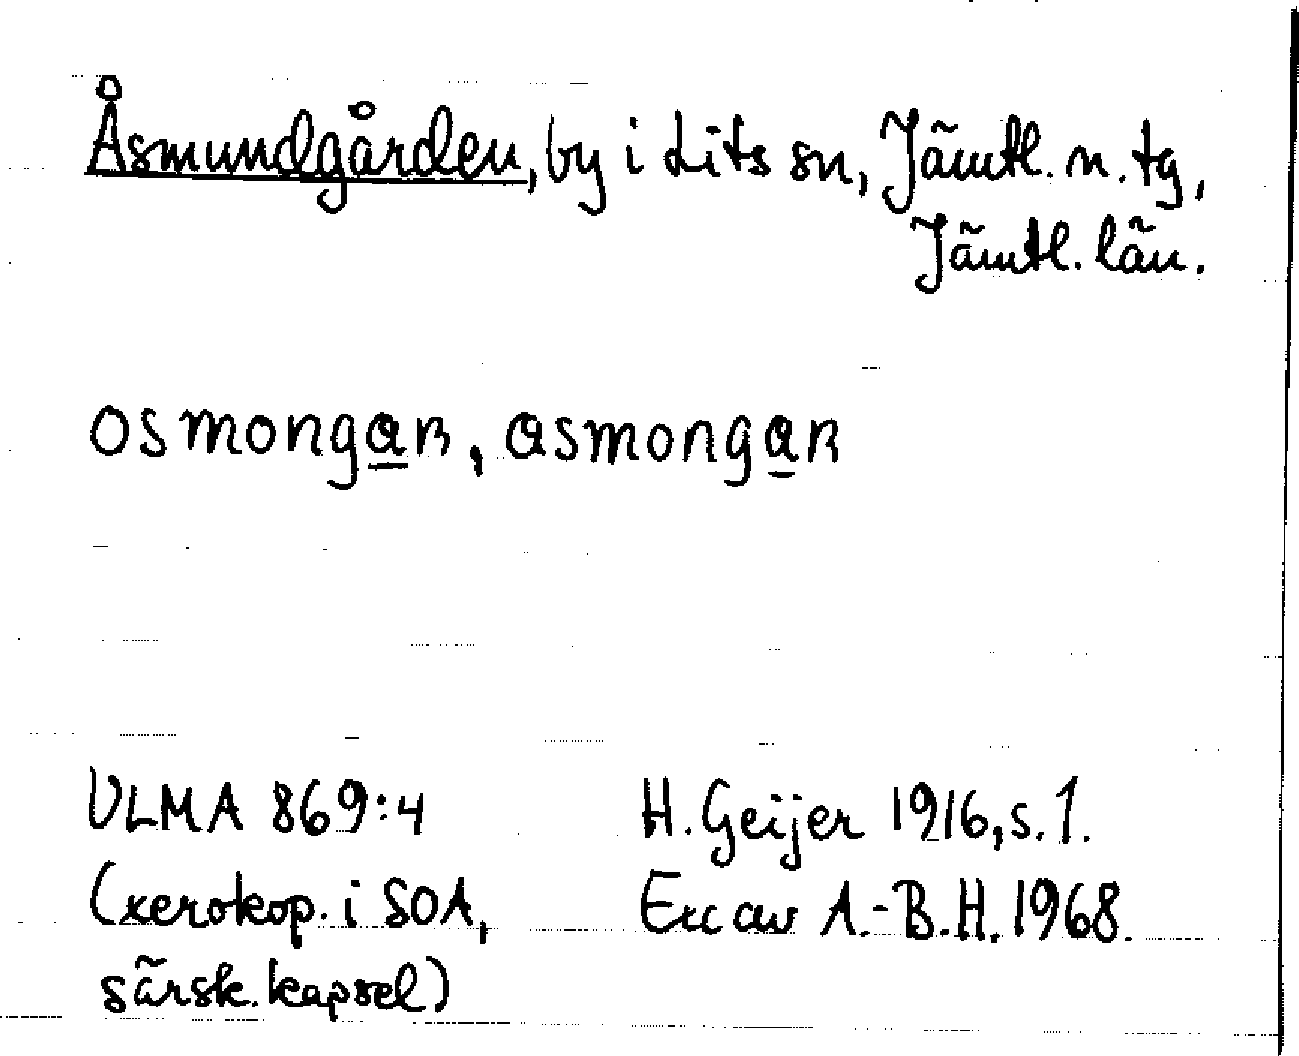 Åsmundgården, by i Lits sn, Jämtl. n. tg,
Jämtl. län.
osmonga̲ʀ, asmonga̲ʀ
ULMA 869:4 H. Geijer 1916, s. 1.
(xerokop. i SOA, Exc av A.-B.H. 1968.
särsk. kapsel)